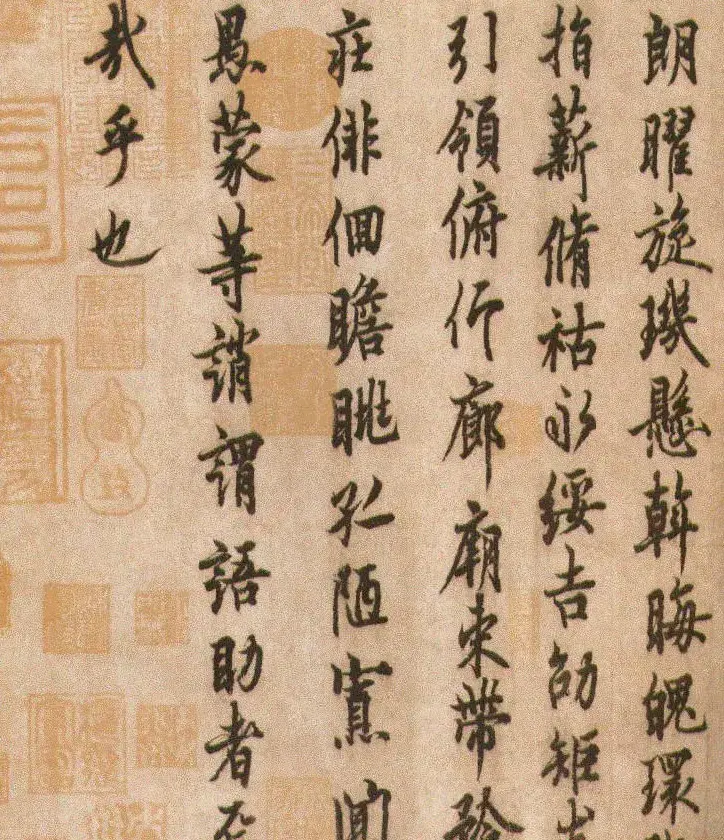 朗曜旋璣懸斡晦魄環
指薪脩祜永綏吉劭矩步
引領俯仰廊廟束帶矜
莊俳佪瞻眺孤陋寡聞
愚蒙等誚謂語助者焉
哉乎也